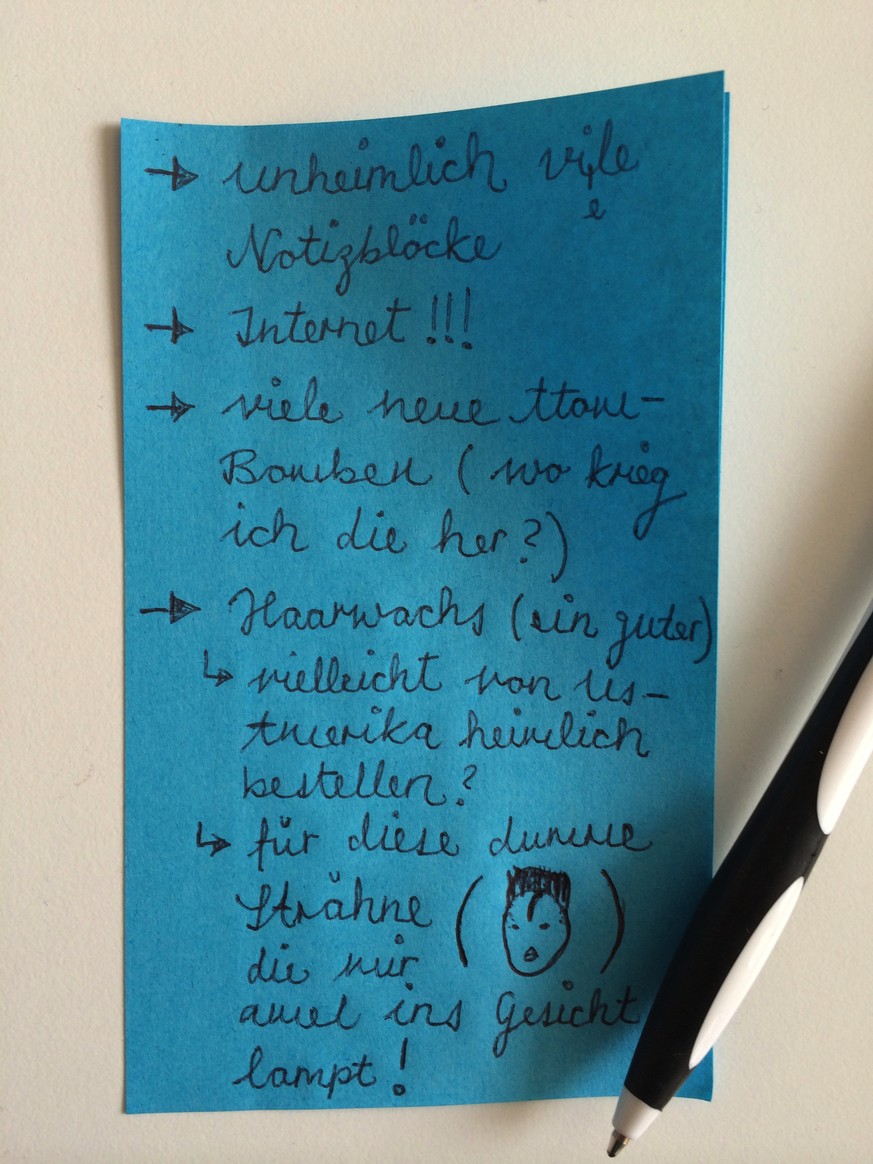 → unheimlich vile
e
Notizblöcke
→ Internet!!!
→ viele neue Atom-
Bomben (wo krieg
ich die her?)
→ Haarwachs (ein guter)
↳ vielleicht von US-
Amerika heimlich
bestellen?
↳ für diese dumme
Strähne ( )
die mir
amel ins Gesicht
lampt!